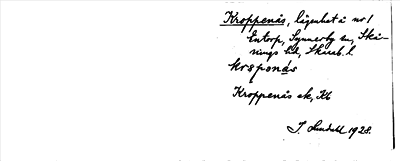 Kroppenås, lägenhet å nr 1
Entorp, Synnerby sn, Skå-
nings hd, Skarab. l.
krɔponås
Kroppenås ek, Kb
I. Lundahl 1928.